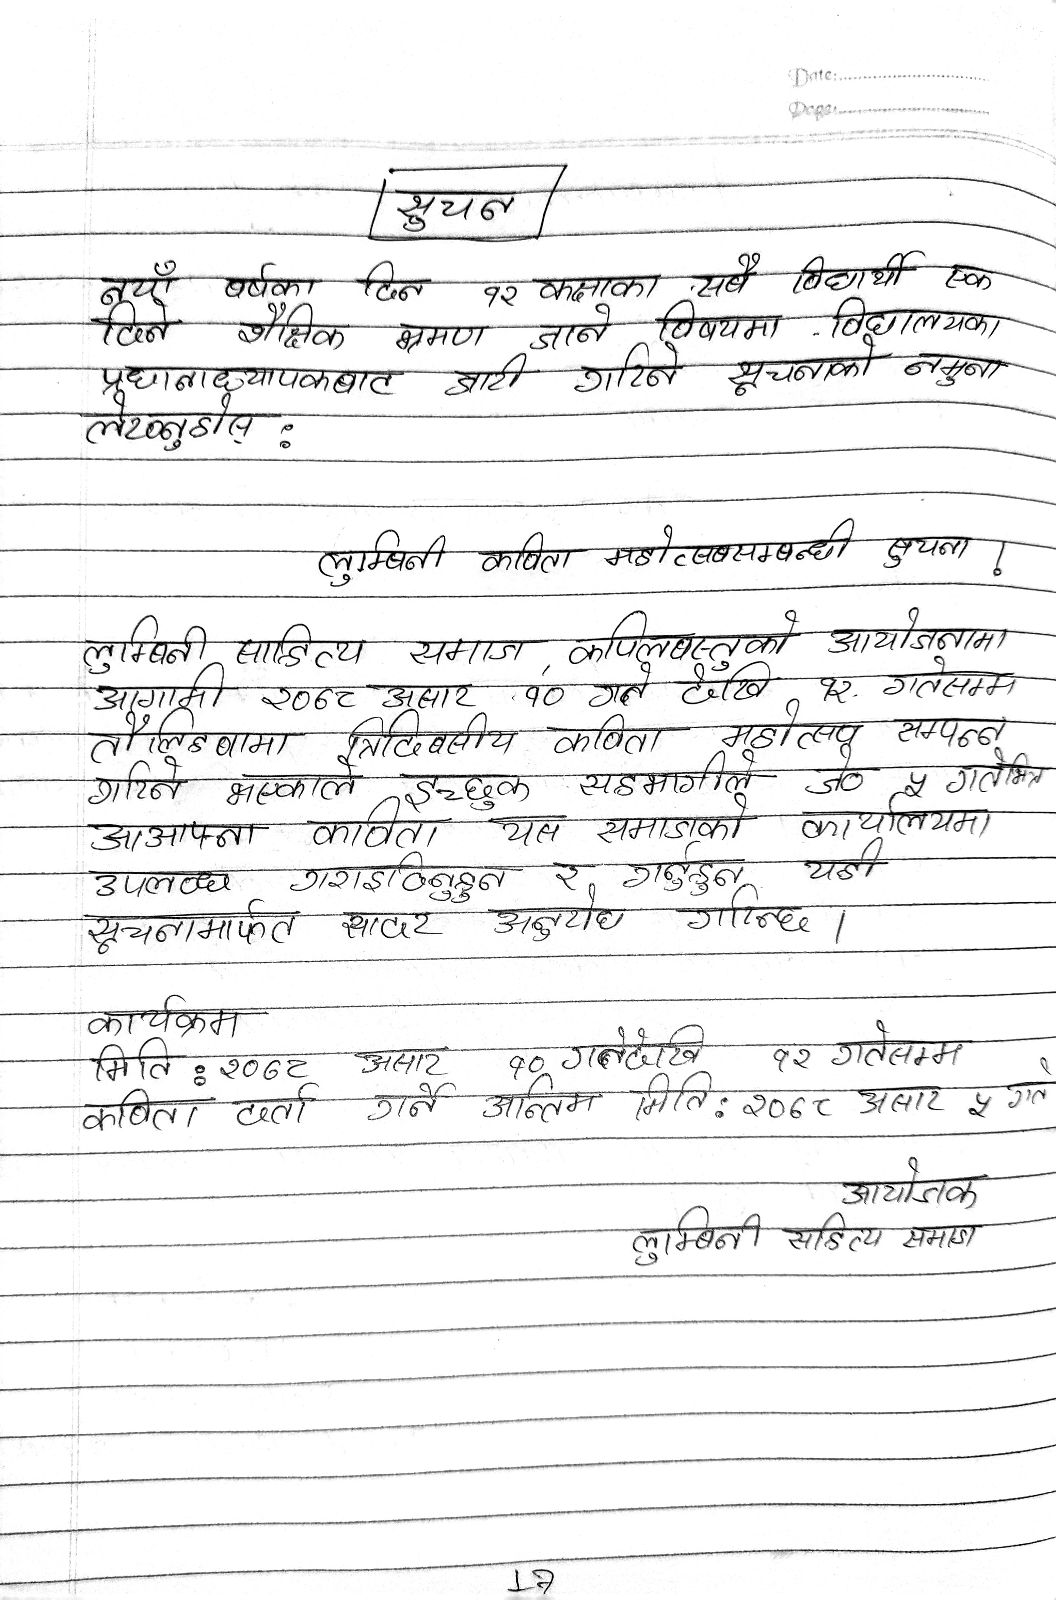 Date:
Page:
सुचन
नयाँ वर्षका दिन १२ कक्षाका सबै विद्यार्थी एक
दिने शैक्षिक भ्रमण जाने विषयमा विद्यालयका
प्रधानाध्यापकबाट जारी गरिने सूचनाको नमुना
लेख्नुहोस् :
लुम्बिनी कविता महोत्सबसम्बन्धी सुचना !
लुम्बिनी साहित्य समाज, कपिलबस्तुको आयोजनामा
आगामी २०६८ असार १० गते देखि १२ गतेसम्म
तौलिहबामा त्रिदिबसीय कबिता महोत्सव सम्पन्न
गरिने भएकाले इच्छुक सहभागीले जेठ ५ गतेभित्र
आआफ्ना कविता यस समाजको कार्यालयमा
उपलब्ध गराइदिनुहुन र गर्नुहुन यही
सूचनामार्फत सादर अनुरोध गरिन्छ ।
कार्यक्रम
मिति : २०६८ असार १० गतेदेखि १२ गतेसम्म
कबिता दर्ता गर्ने अन्तिम मिति : २०६८ असार ५ गते
आयोजक
लुम्बिनी सहित्य समाज